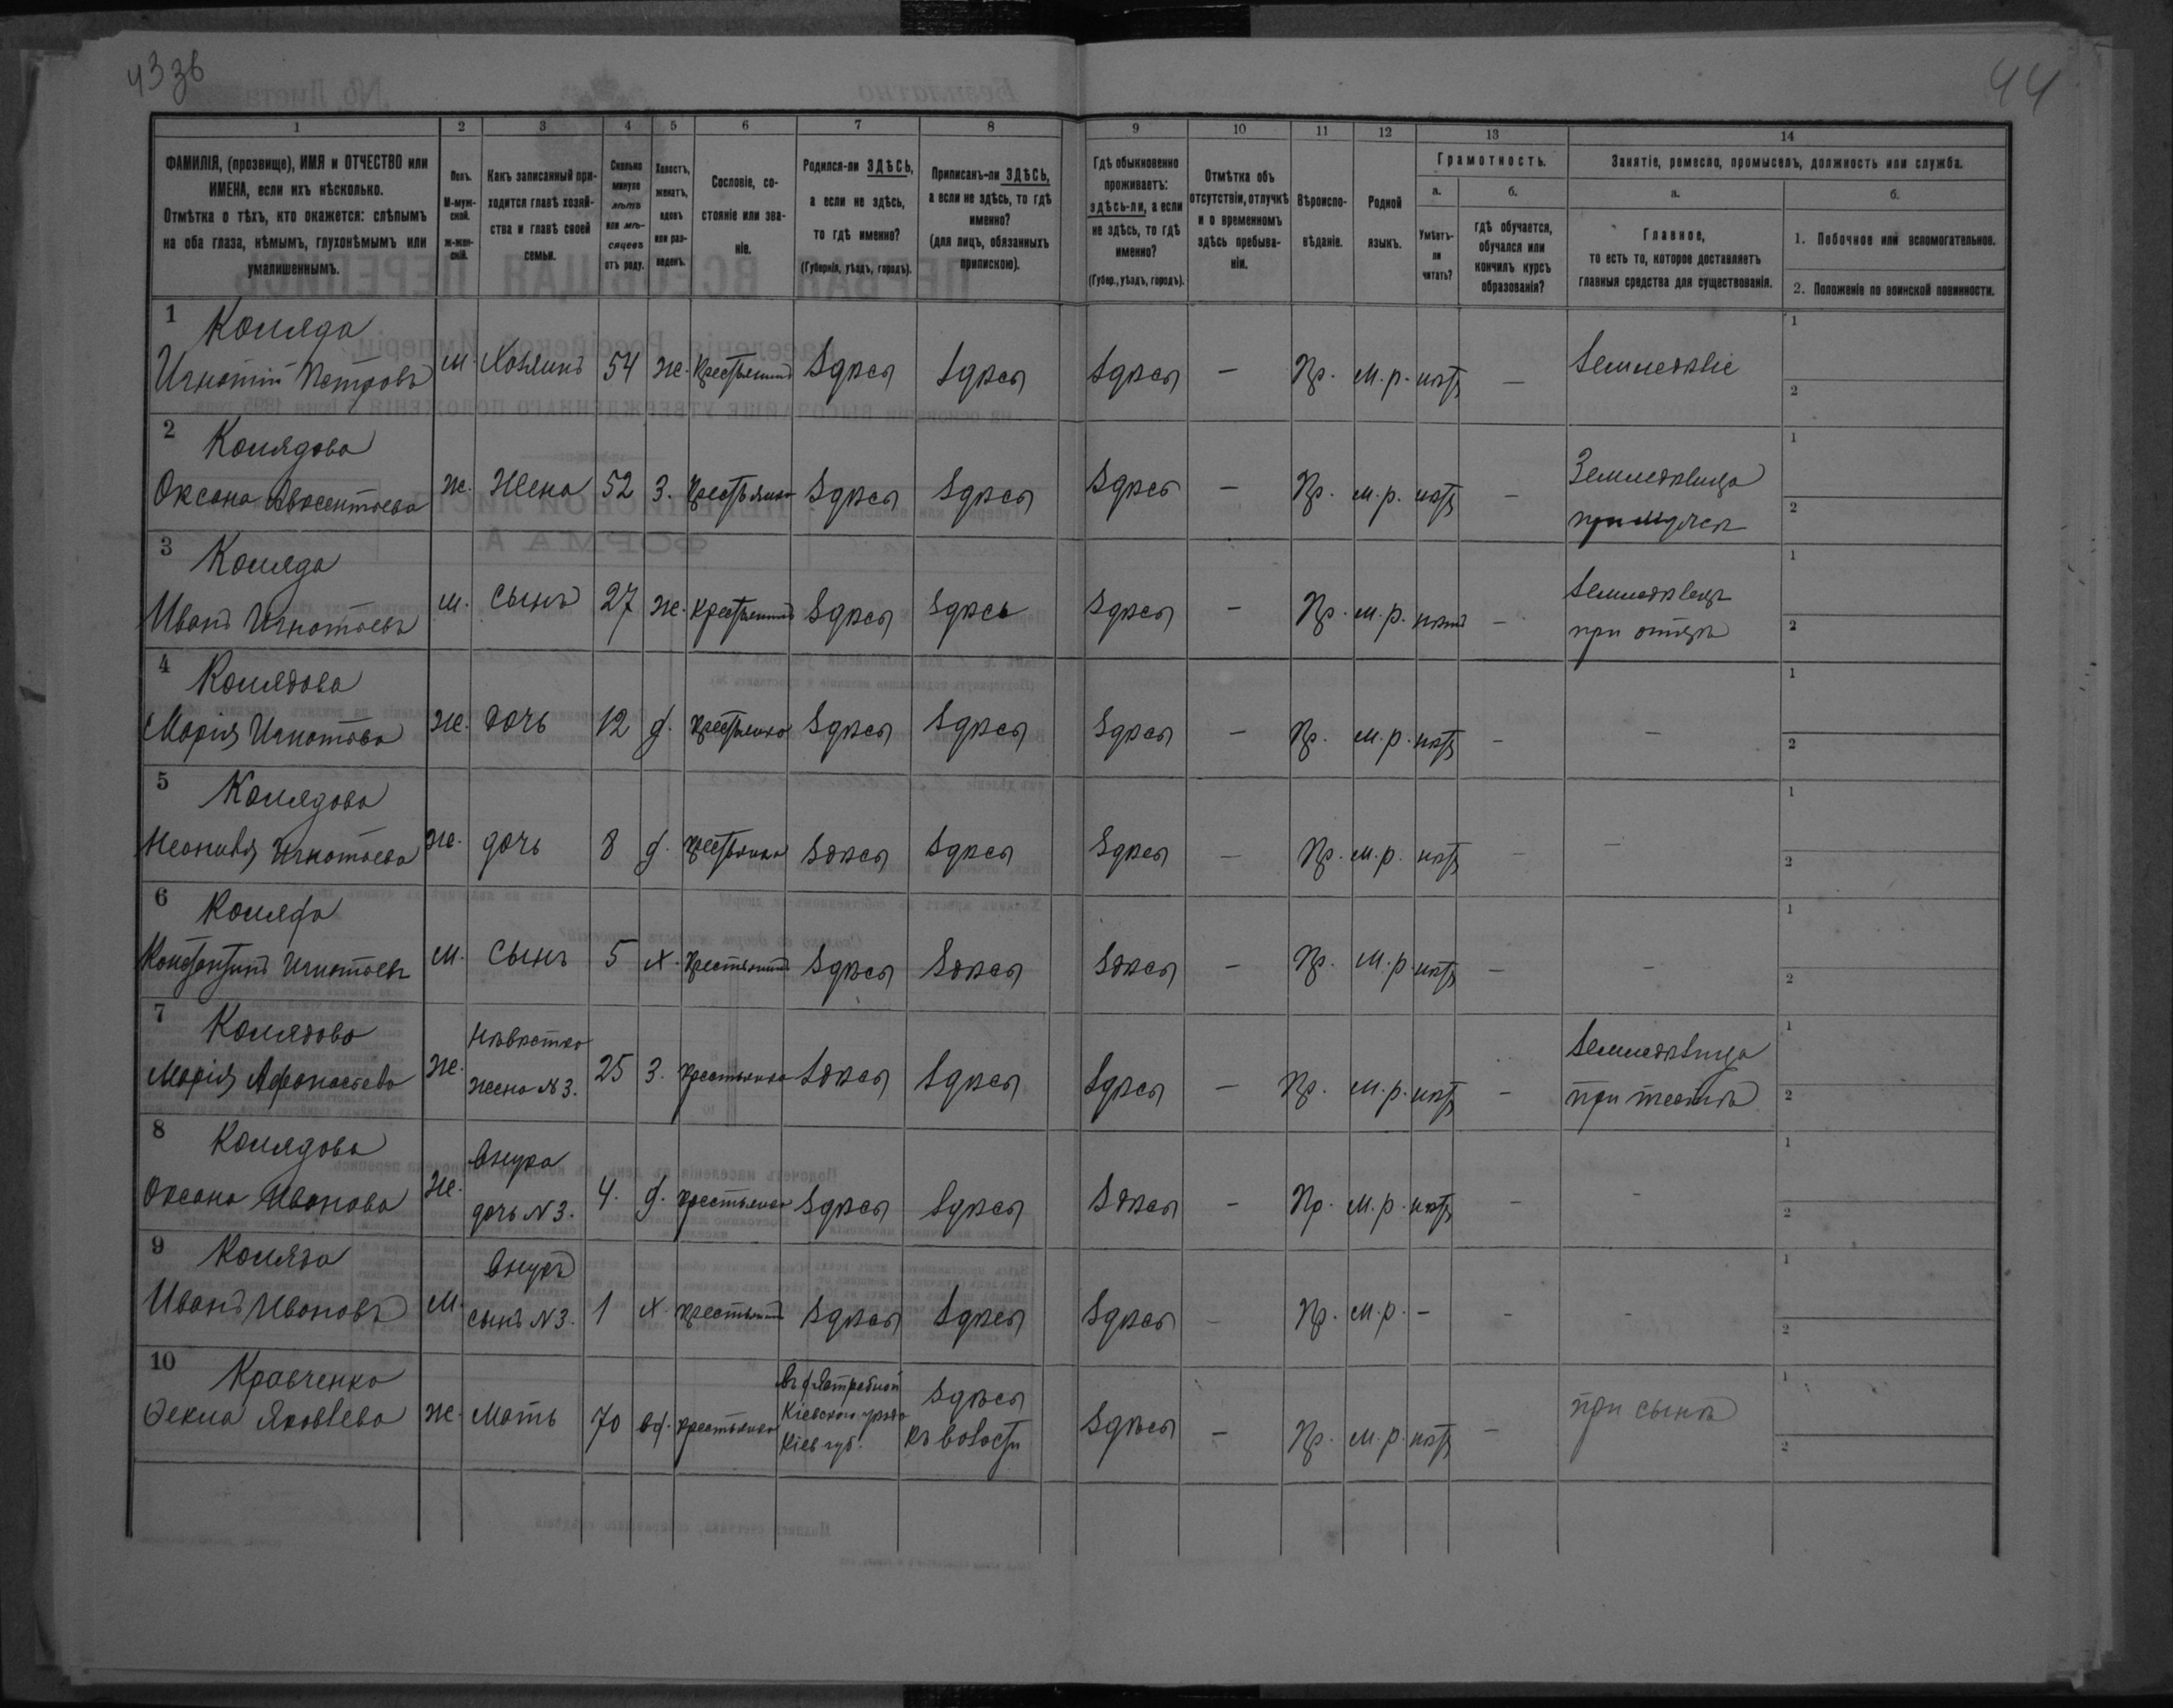 43 зв
44
1 2 3 4 5 6 7 8 9 10 11 12 13 14
ФАМИЛІЯ, (прозвище), ИМЯ и ОТЧЕСТВО или
ИМЕНА, если ихъ нѣсколько.
Отмѣтка о тѣхъ, кто окажется: слѣпымъ
на оба глаза, нѣмымъ, глухонѣмымъ или
умалишеннымъ.
Полъ.
М-муж-
ской.
ж-жен-
скій.
Какъ записанный при-
ходится главѣ хозяй-
ства и главѣ своей
семьи.
Сколько
минуло
лѣтъ
или мѣ-
сяцевъ
отъ роду.
Холостъ,
женатъ,
вдовъ
или раз-
веденъ.
Сословіе, со-
стояніе или зва-
ніе.
Родился-ли ЗДѢСЬ,
а если не здѣсь,
то гдѣ именно?
(Губернія, уѣздъ, городъ).
Приписанъ-ли ЗДѢСЬ,
а если не здѣсь, то гдѣ
именно?
(для лицъ, обязанныхъ
припискою).
Гдѣ обыкновенно
проживаетъ:
здѣсь-ли, а если
не здѣсь, то гдѣ
именно?
(Губер., уѣздъ, городъ).
Отмѣтка объ
отсутствіи, отлучкѣ
и о временномъ
здѣсь пребыва-
ніи.
Вѣроиспо-
вѣданіе.
Родной
языкъ.
Грамотность.
а.
Умѣетъ-
ли
читать?
б.
гдѣ обучается,
обучался или
кончилъ курсъ
образованія?
Занятіе, ремесло, промыселъ, должность или служба.
а.
Главное,
то есть то, которое доставляетъ
главныя средства для существованія.
б.
1. Побочное или вспомогательное.
2. Положеніе по воинской повинности.
1 Коляда
Игнатій Петровъ м. Хозяинъ 54 ж. Крестьянинъ Здѣсь Здѣсь Здѣсь - Пр. м.р. нѣтъ - Земледѣліе 1 2
2 Колядова
Оксана Авксентьева ж. Жена 52 З. Крестьянка Здѣсь Здѣсь Здѣсь - Пр. м.р. нѣтъ - Земледѣлица 1 2
при мужѣ
3 Коляда
Иванъ Игнатьевъ м. Сынъ 27 ж. Крестьянинъ Здѣсь Здѣсь Здѣсь - Пр. м.р. нѣтъ - Земледѣлецъ 1 2
при отцѣ
4 Колядова
Марія Игнатьева ж. дочь 12 д. Крестьянка Здѣсь Здѣсь Здѣсь - Пр. м.р. нѣтъ - - 1 2
5 Колядова
Неонила Игнатьева ж. дочь 8 д. Крестьянка Здѣсь Здѣсь Здѣсь - Пр. м.р. нѣтъ - - 1 2
6 Коляда
Константинъ Игнатьевъ м. Сынъ 5 х. Крестьянинъ Здѣсь Здѣсь Здѣсь - Пр. м.р. нѣтъ - - 1 2
7 Колядова
Марія Афанасьева ж. Невѣстка
жена №3. 25 З. Крестьянка Здѣсь Здѣсь Здѣсь - Пр. м.р. нѣтъ - Земледѣлица 1 2
8 Колядова
Оксана Иванова ж. Внука
дочь №3. 4. д. Крестьянка Здѣсь Здѣсь Здѣсь - Пр. м.р. нѣтъ - - 1 2
9 Коляда
Иванъ Ивановъ м. Внукъ
сынъ №3. 1 х. Крестьянинъ Здѣсь Здѣсь Здѣсь - Пр. м.р. - - - 1 2
10 Кравченко
Ѳекла Яковлева ж. Мать 70 вд. Крестьянка Кіевскаго уѣзда
Кіев губ. Здѣсь
къ волости Здѣсь - Пр. м.р. нѣтъ - при сынѣ 1 2